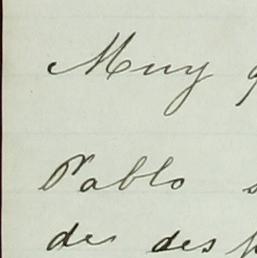 Muy
Pablo
de des